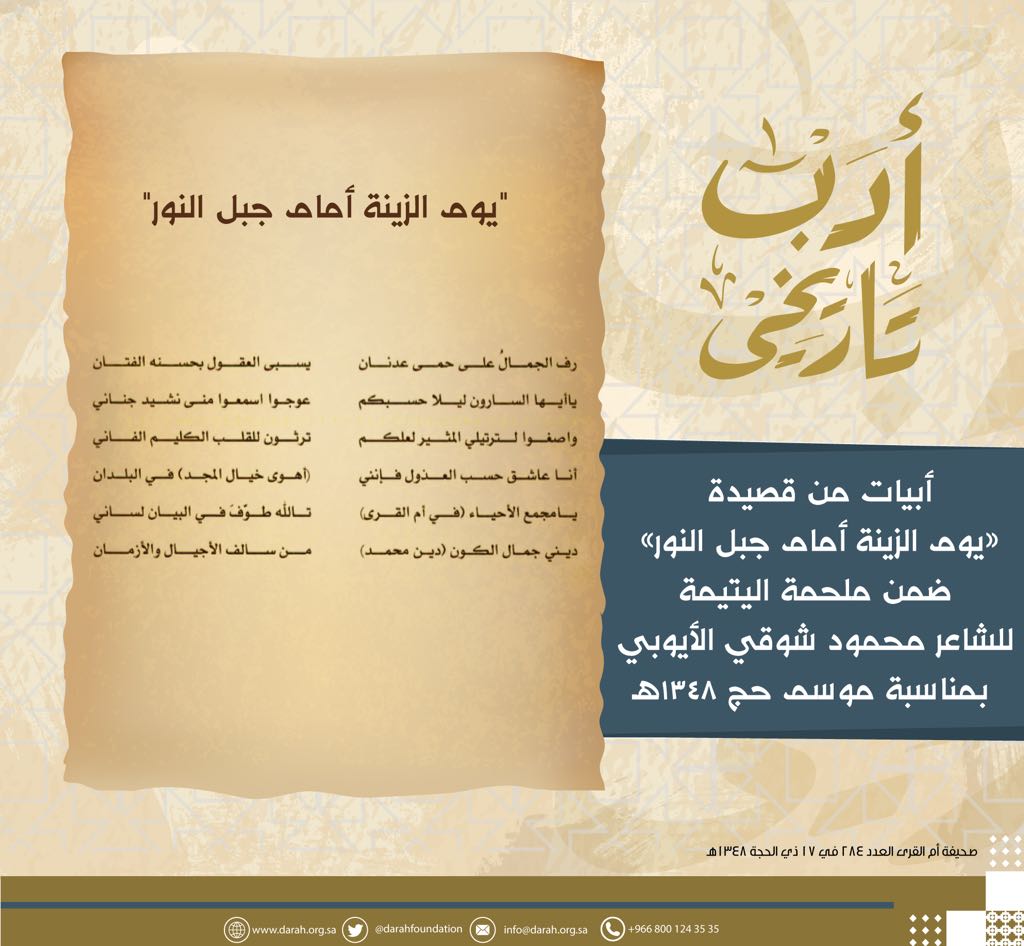 أدب
تاريخي
"يوم الزينة أمام جبل النور"
رف الجمالُ على حمى عدنان يسبى العقول بحسنه الفتان
ياأيها السارون ليلا حسبكم عوجوا اسمعوا منى نشيد جناني
واصغوا لترتيلي المثير لعلكم ترثون للقلب الكليم الفاني
أنا عاشق حسب العذول فإنني (أهوى خيال المجد) في البلدان
يامجمع الأحياء (في أم القرى) تالله طوّفَ في البيان لساني
ديني جمال الكون (دين محمد) من سالف الأجيال والأزمان
أبيات من قصيدة
«يوم الزينة أمام جبل النور»
ضمن ملحمة اليتيمة
للشاعر محمود شوقي الأيوبي
بمناسبة موسم حج ١٣٤٨هـ
صحيفة أم القرى العدد ٢٨٤ في ١٧ ذي الحجة ١٣٤٨هـ
www.darah.org.sa @darahfoundation info@darah.org.sa +966 800 124 35 35